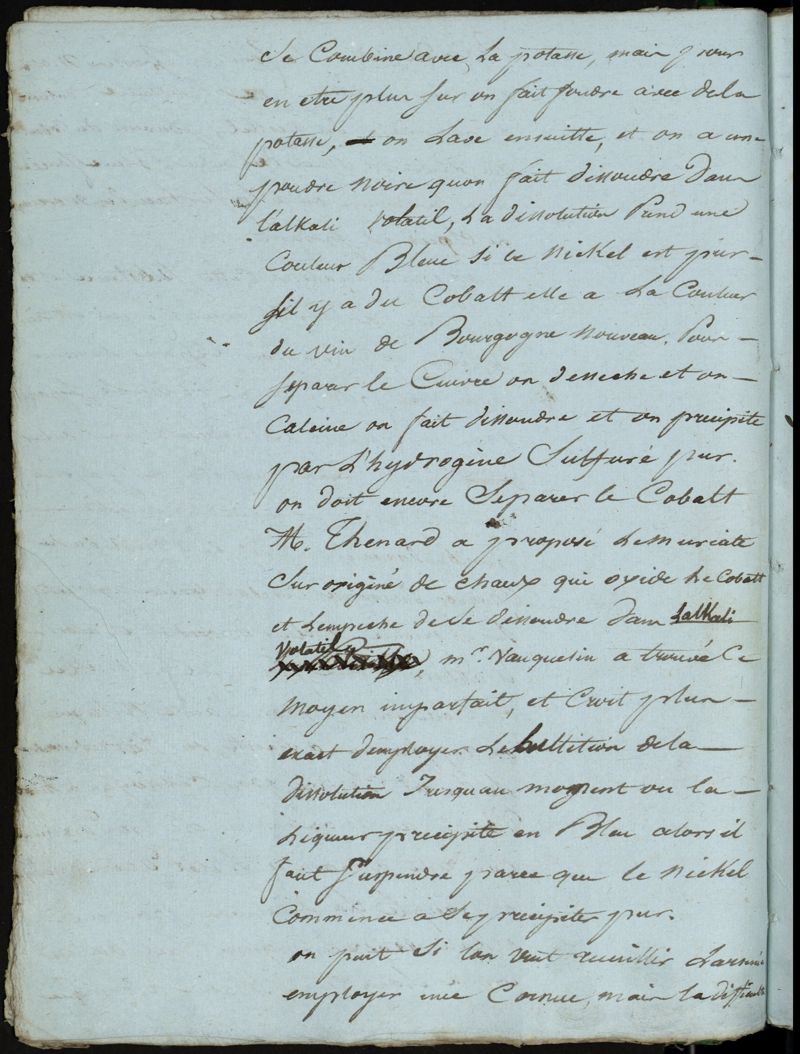 Se Combine avec La potasse, mais pour
en etre plus sur on fait fondre avec de la
potasse, on Lave ensuitte, et on a une
poudre noire quon fait dissoudre dans
l'alkali volatil, La dissolution Prend une
Couleur Bleue Si le Nickel est pur
Sil y a du Cobalt elle a La Couleur
du vin de Bourgogne nouveau. Pour
separer le Cuivre on desseche et on
Calcine on fait dissoudre et on precipite
par L'hydrogène Sulfuré pur.
on doit encore Separer le Cobalt
M. Thenard a proposé Le muriate
Sur oxigéné de chaux qui oxide Le Cobalt
et Lempeche de Se dissoudre dans Lalkali
volatil, mr. Vauquelin a trouvé Ce
moyen imparfait, et Croit plus
exact demployer Lebullition de la
dissolution Jusquau moment ou la
Liqueur precipite en Bleu alors il
faut Suspendre parce que le Nickel
Commence a Se precipiter pur.
on peut Si lon veut recueillir Larsenic
employer une Cornue, mais la difficulté